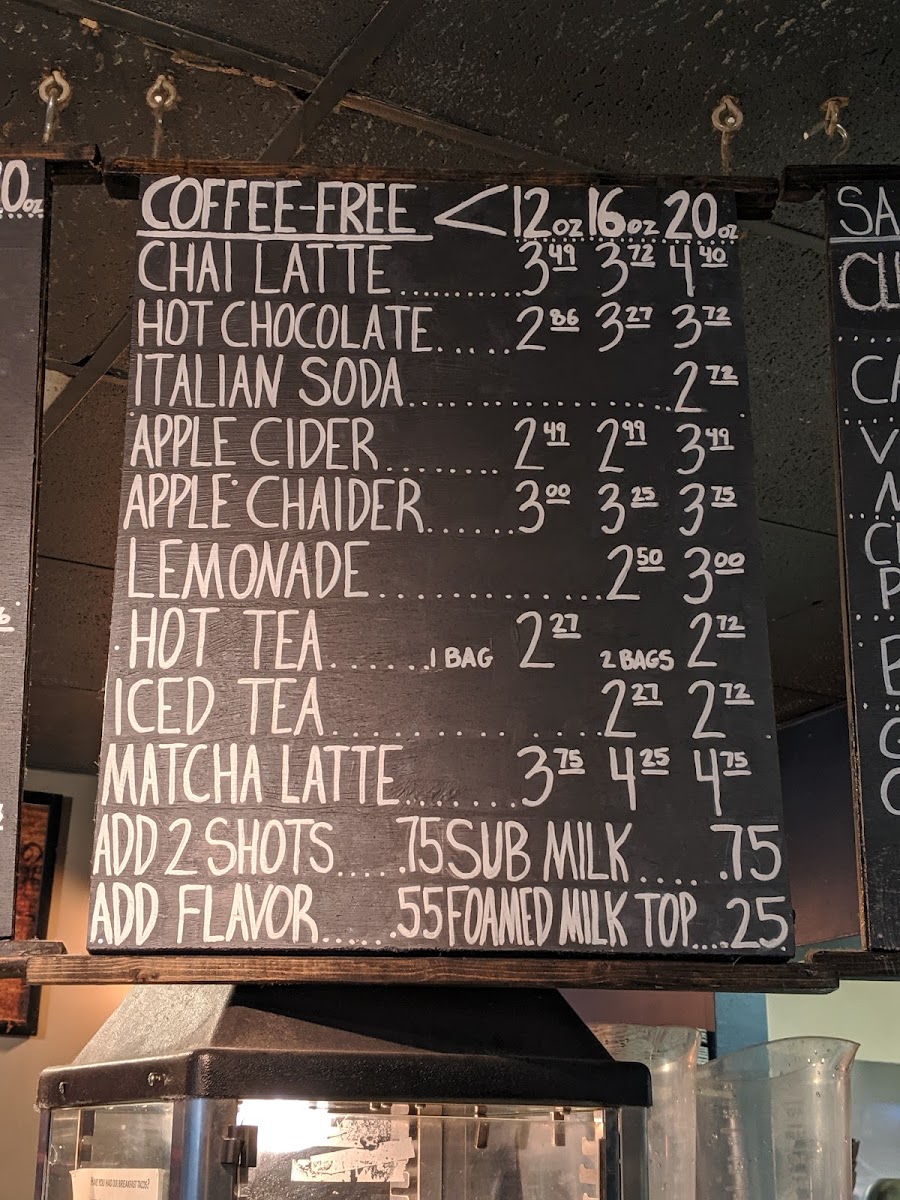 0oz
COFFEE-FREE < 12oz 16oz 20oz
CHAI LATTE ......... 3 49 3 72 4 40
HOT CHOCOLATE..... 2 86 3 27 3 72
ITALIAN SODA................... 2 72
APPLE CIDER........ 2 49 2 99 3 49
APPLE CHAIDER...... 3 00 3 25 3 75
LEMONADE.............. 2 50 3 00
HOT TEA....... 1 BAG 2 27 2 BAGS 2 72
ICED TEA.................. 2 27 2 72
MATCHA LATTE........ 3 75 4 25 4 75
ADD 2 SHOTS.....75 SUB MILK .... .75
ADD FLAVOR......55 FOAMED MILK TOP....25
SA
HAVE YOU HAD OUR BREAKFAST TACOS?